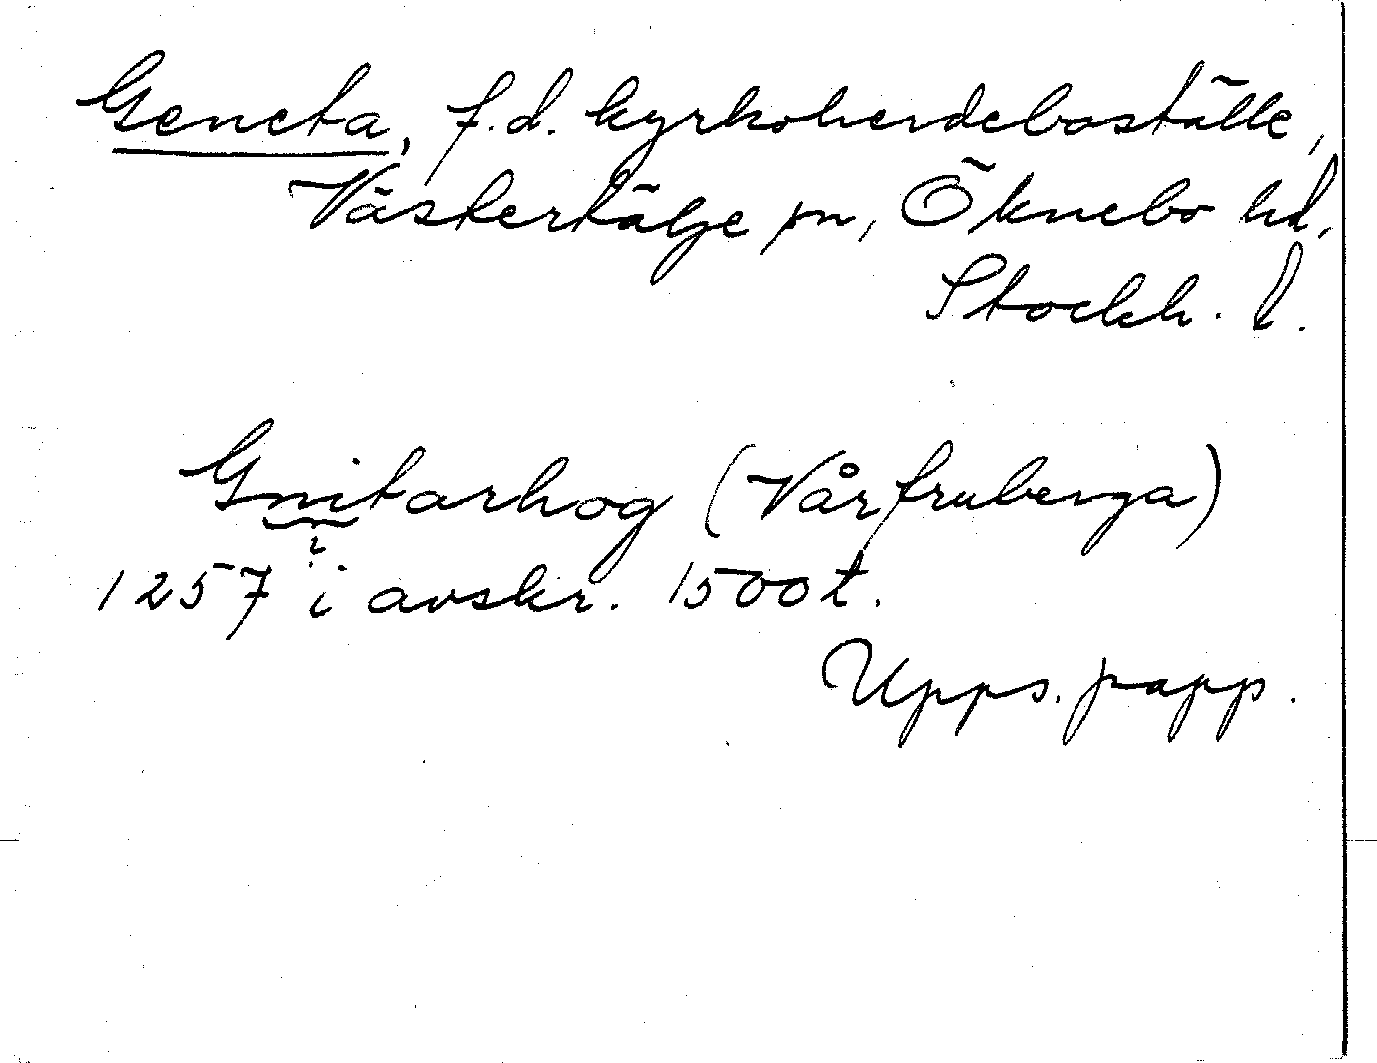 Geneta, f.d. kyrkoherdeboställe,
Västertälje sn, Öknebo hd,
Stockh. l.
Gnitarhog (Vårfruberga)
1257 i avskr. 1500t.
Upps. papp.